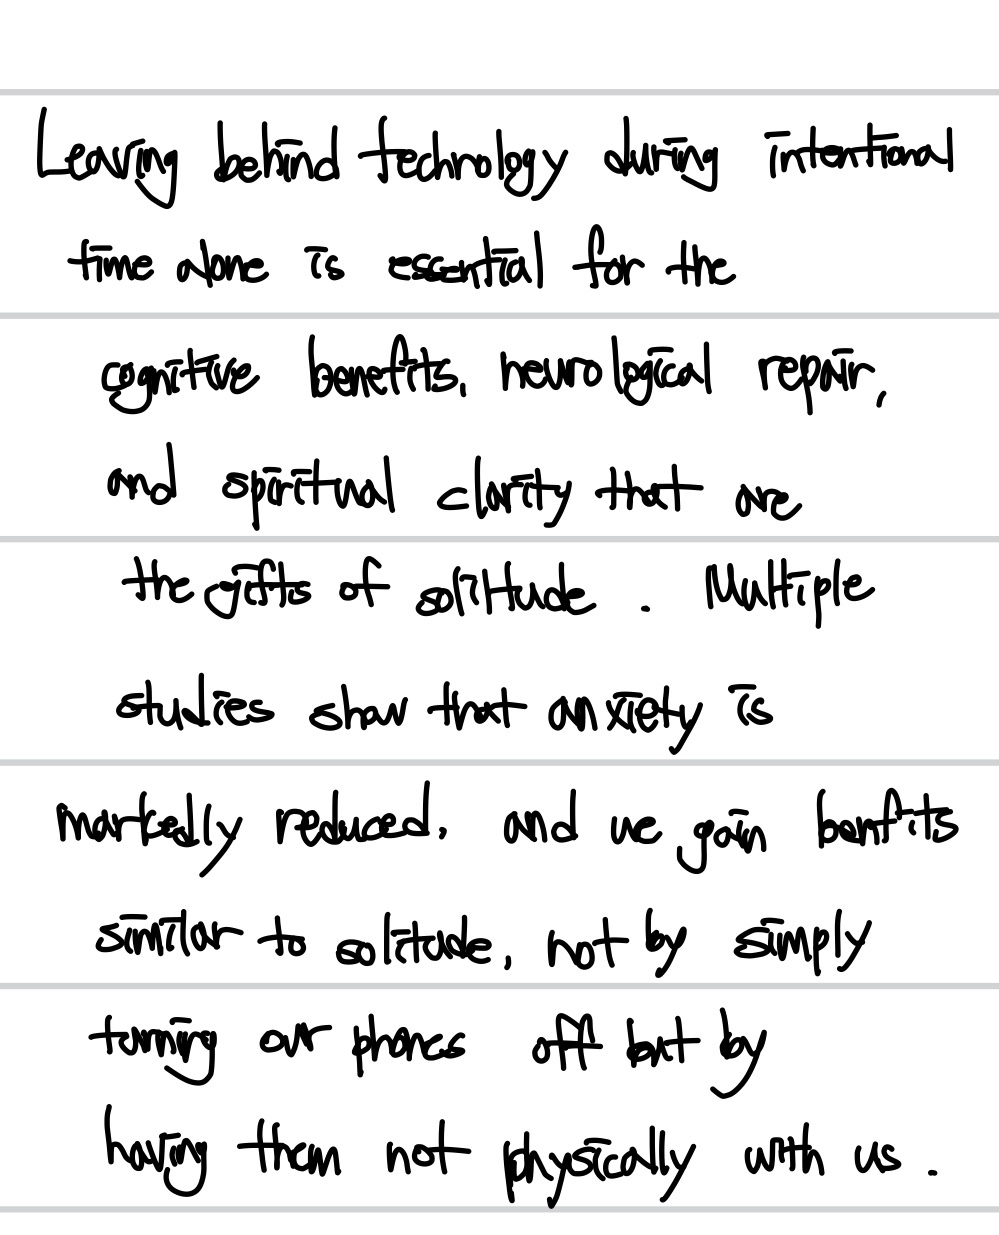 Leaving behind technology during intentional
time alone is essential for the
cognitive benefits, neurological repair,
and spiritual clarity that are
the gifts of solitude . Multiple
studies show that anxiety is
markedly reduced, and we gain benfits
similar to solitude, not by simply
turning our phones off but by
having them not physically with us .